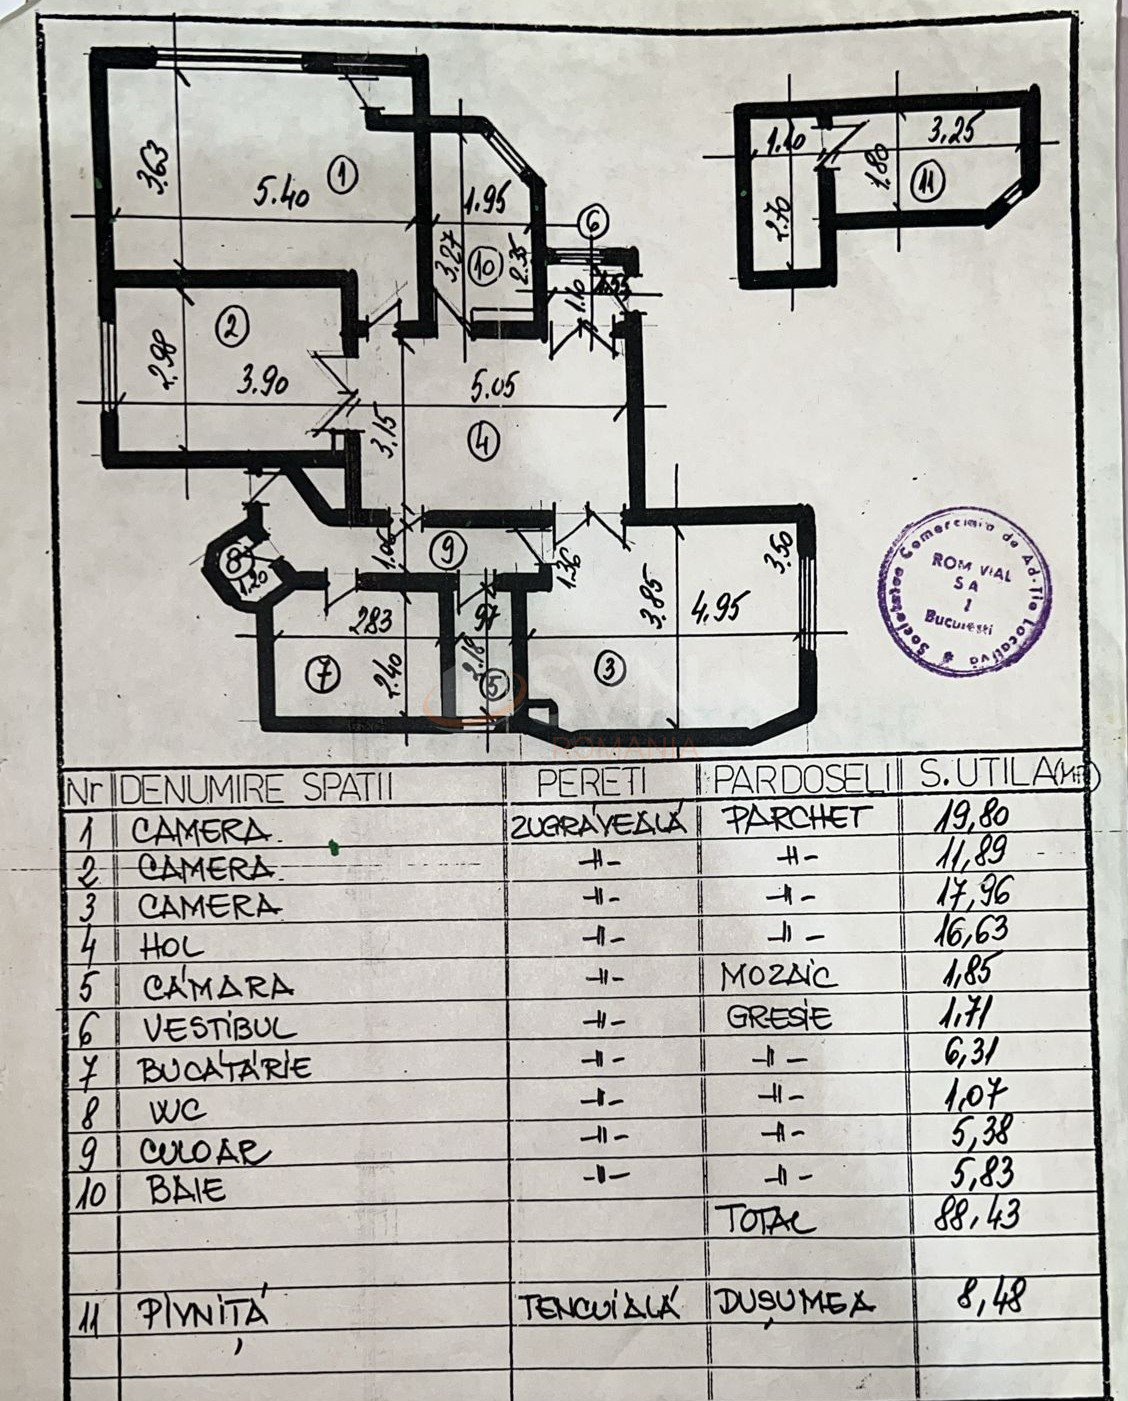 3.63
5.40
1
1.95
3.27
10
2.35
6
1.10
1.55
1.10
3.25
1.80
11
2.70
2
2.98
3.90
5.05
3.15
4
1.06
9
1.36
8
1.20
3.50
3.85
4.95
283
97
2.18
2.40
7
5
3
Societatea Comerciala de Ad-tia Locativa
ROM VIAL
SA
1
Bucuresti
ROMANIA
Nr DENUMIRE SPATII PERETI PARDOSELI S.UTILA
1 CAMERA ZUGRĂVEALĂ PARCHET 19,80
2 CAMERA -||- -||- 11,89
3 CAMERA -||- -||- 17,96
4 HOL -||- -||- 16,63
5 CĂMARA -||- MOZAIC 1,85
6 VESTIBUL -||- GRESIE 1,71
7 BUCĂTĂRIE -||- -||- 6,31
8 WC -||- -||- 1,07
9 CULOAR -||- -||- 5,38
10 BAIE -||- -||- 5,83
TOTAL 88,43
11 PIVNIȚĂ TENCUIALĂ DUȘUMEA 8,48